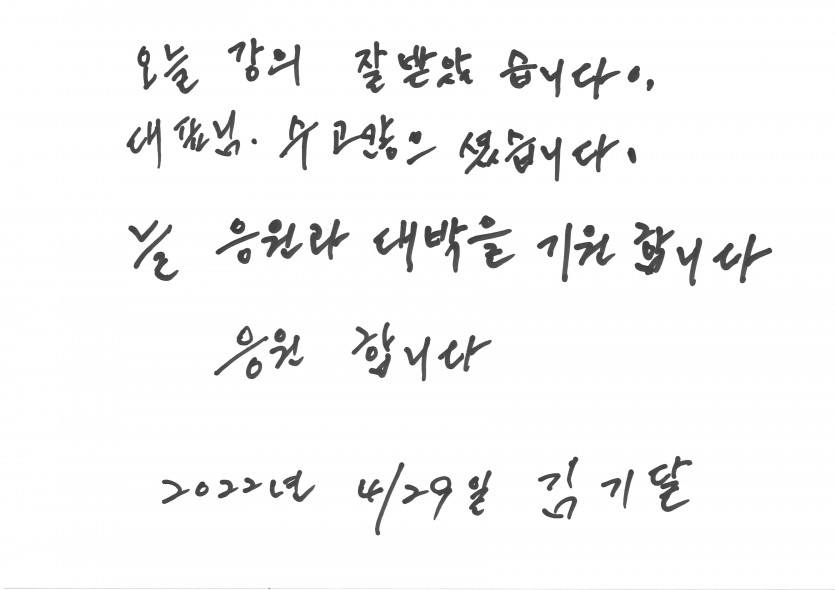 오늘 강의 잘 받았습니다.
대표님. 수고 많으셨습니다.
늘 응원과 대박을 기원합니다
응원 합니다
2022년 4/29일 김기달